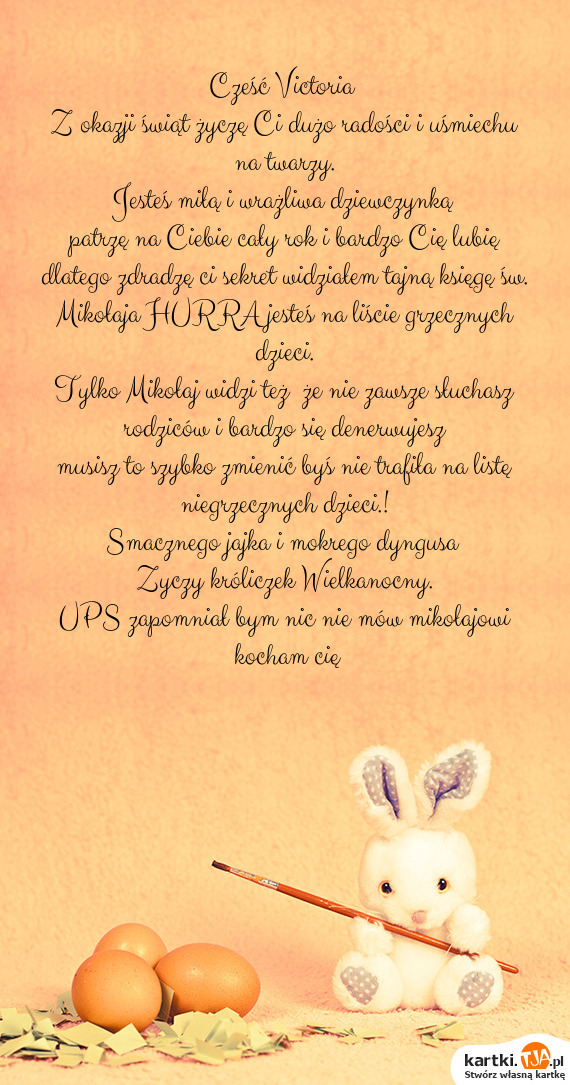 Cześć Victoria
Z okazji świąt życzę Ci dużo radości i uśmiechu
na twarzy.
Jesteś miłą i wrażliwa dziewczynką
patrzę na Ciebie cały rok i bardzo Cię lubię
dlatego zdradzę ci sekret widziałem tajną księgę św.
Mikołaja HURRA jesteś na liście grzecznych
dzieci.
Tylko Mikołaj widzi też że nie zawsze słuchasz
rodziców i bardzo się denerwujesz
musisz to szybko zmienić byś nie trafiła na listę
niegrzecznych dzieci.!
Smacznego jajka i mokrego dyngusa
Zyczy króliczek Wielkanocny.
UPS zapomniał bym nic nie mów mikołajowi
kocham cię
kartki.TJA.pl
Stwórz własną kartkę